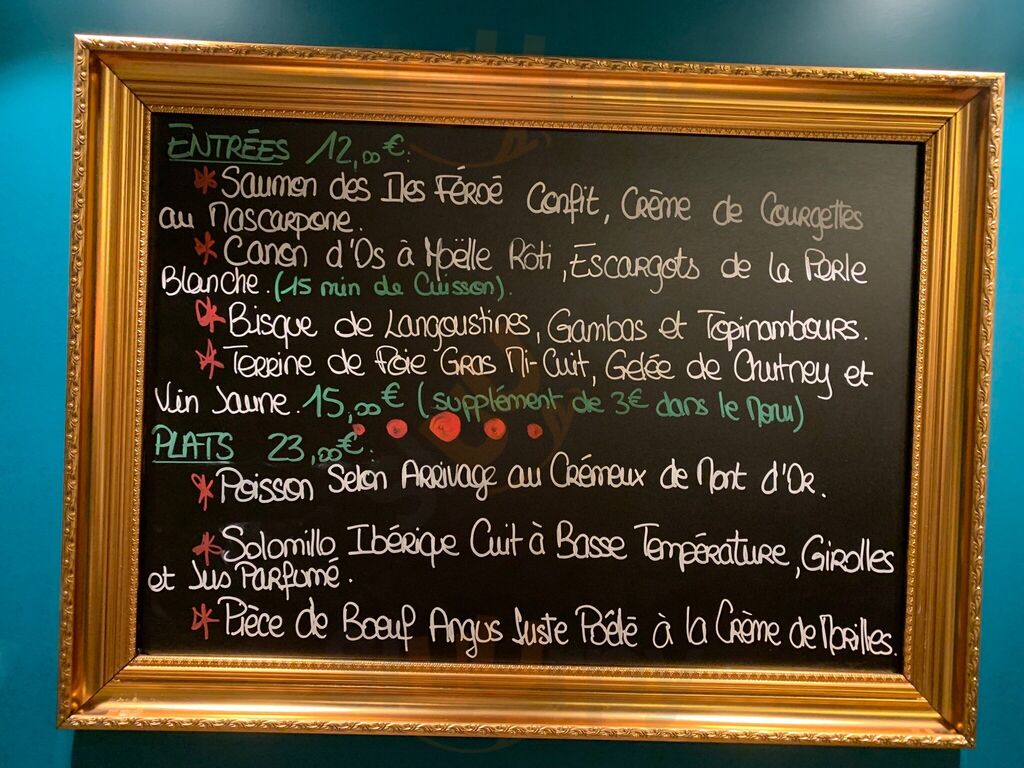 ENTRÉES 12,00€.
* Saumon des Iles Féroé Confit, Crème de Courgettes
au Mascarpone.
* Canon d'Os à Moëlle Rôti, Escargots de la Perle
Blanche. (15 min de Cuisson).
* Bisque de Langoustines, Gambas et Topinambours.
* Terrine de Foie Gras Mi-Cuit, Gelée de Chutney et
Vin Jaune. 15,00€ (supplément de 3€ dans le Menu)
PLATS 23,00€.
* Poisson Selon Arrivage au Crémeux de Mont d'Or.
* Solomillo Ibérique Cuit à Basse Température, Girolles
et Jus Parfumé.
* Pièce de Boeuf Angus Juste Poêlé à la Crème de Morilles.